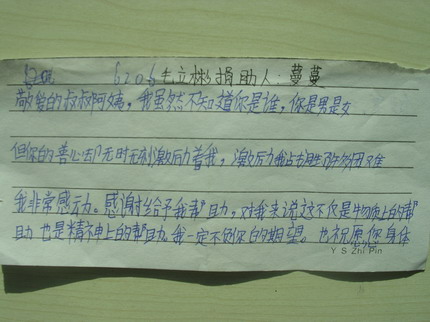 6206毛立彬 捐助人：蔓蔓
敬爱的叔叔阿姨，我虽然不知道你是谁，你是男是女
但你的善心却无时无刻激励着我，激励我占胜了许多困难
我非常感动。感谢对给予我帮助，对我来说这不仅是物质上的帮
助 也是精神上的帮助。我一定不负你的期望。也祝愿你身体
Y S Zhi Pin